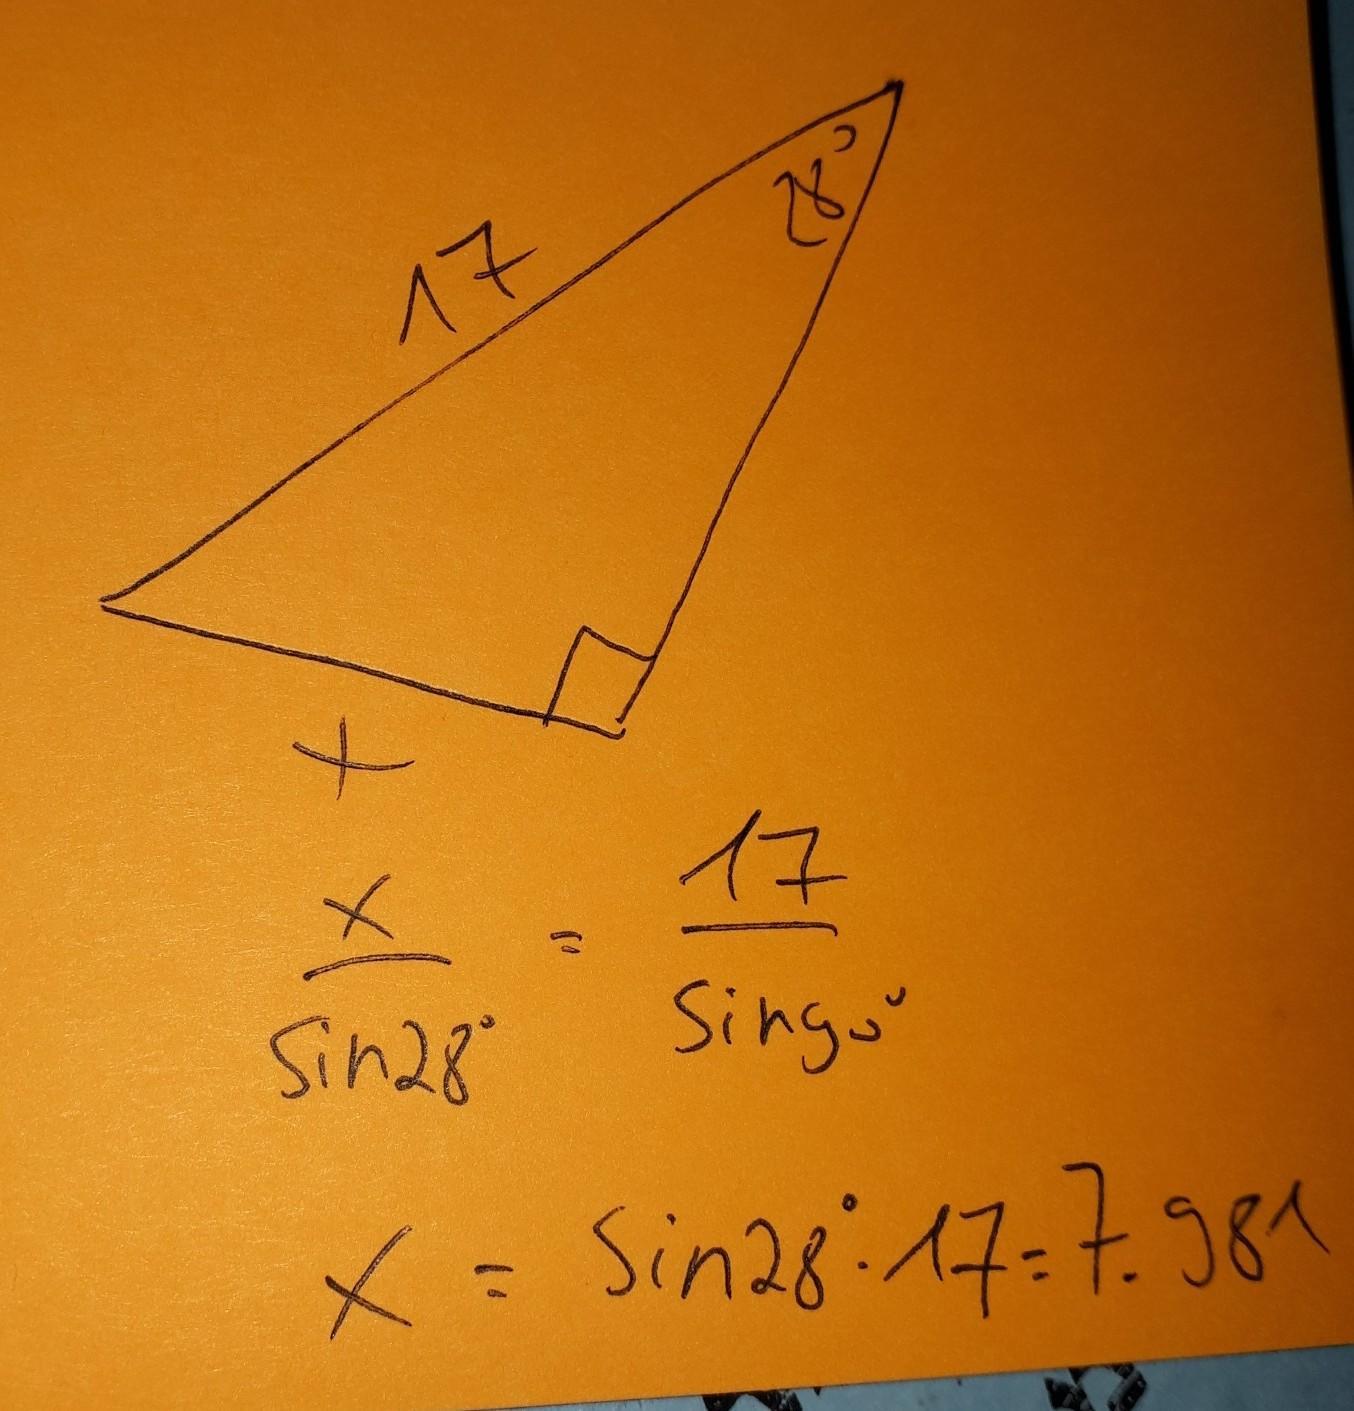 28°
17
x
x/sin28° = 17/sin90°
x = sin28° · 17 = 7.981